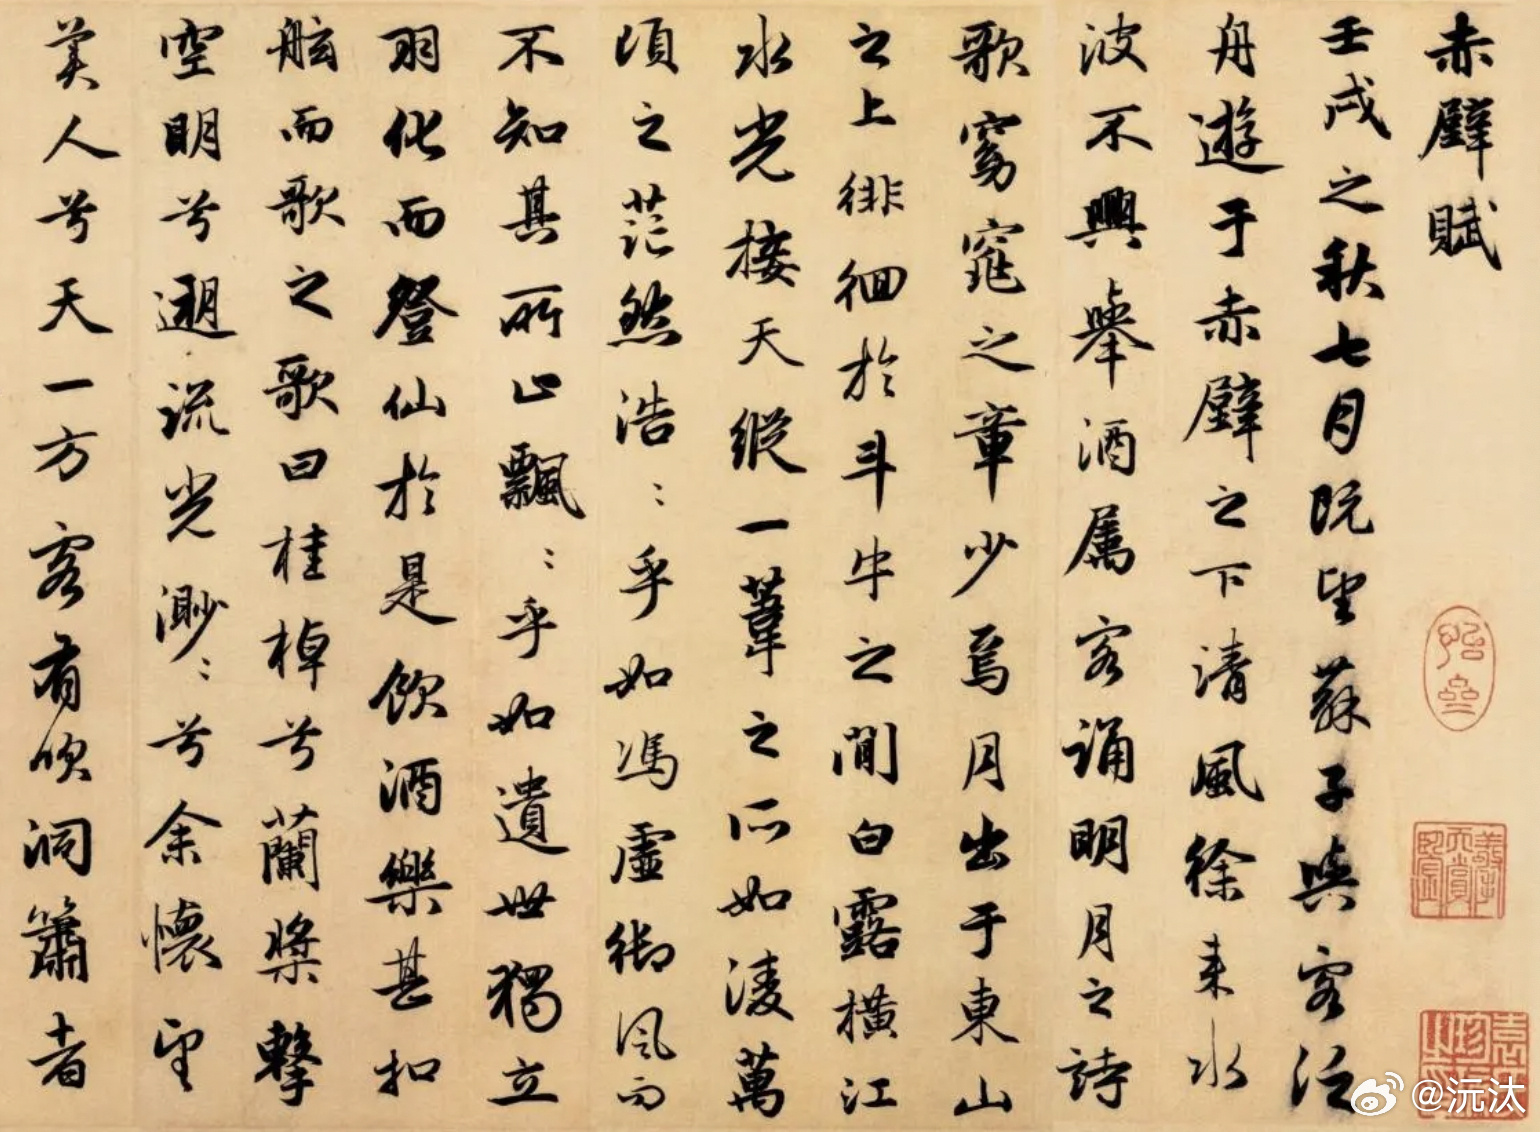 赤壁賦
壬戌之秋七月既望蘇子與客泛
舟遊于赤壁之下清風徐来水
波不興舉酒属客誦明月之詩
歌窈窕之章少焉月出于東山
之上徘徊於斗牛之間白露橫江
水光接天縱一葦之所如淩萬
頃之茫然浩:乎如馮虛御風而
不知其所止飄:乎如遺世獨立
羽化而登仙於是飲酒樂甚扣
舷而歌之歌曰桂棹兮蘭槳擊
空明兮遡流光渺:兮余懷望
美人兮天一方客有吹洞簫者
@沅汰